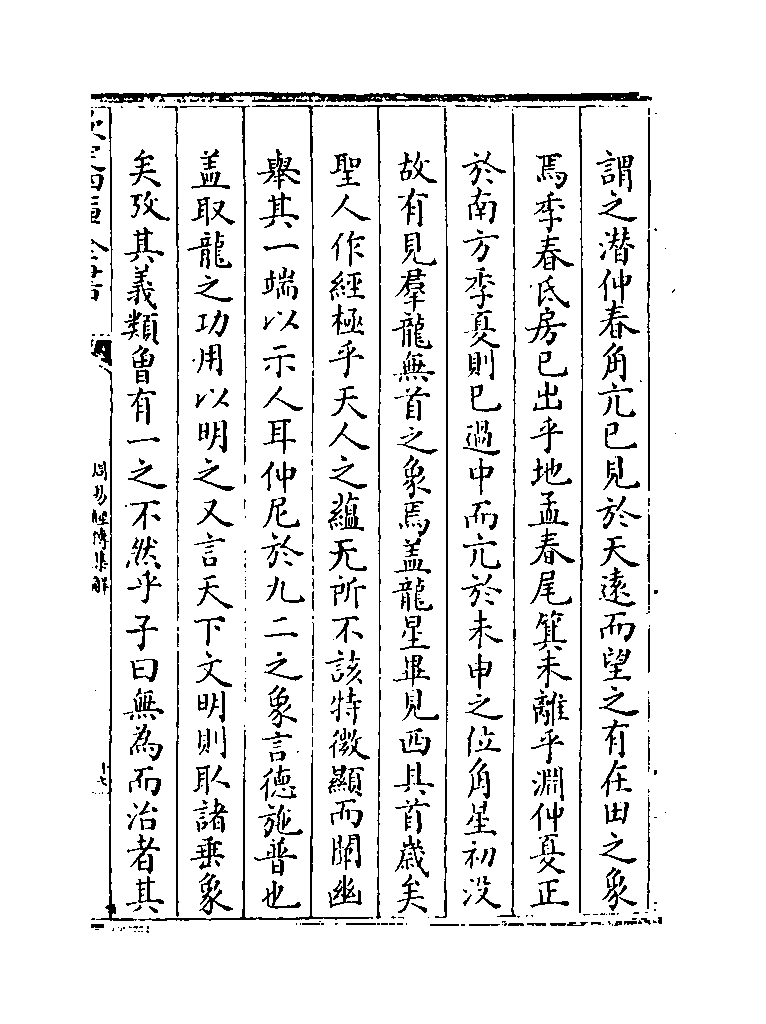 謂之潜仲春角亢已見於天遠而望之有在田之象
焉季春氐房已出乎地孟春尾箕未離乎淵仲夏正
於南方季夏則已過中而亢於未申之位角星初没
故有見羣龍無首之象焉盖龍星畢見西具首嵗矣
聖人作經極乎天人之蘊无所不該特微顯而闡幽
舉其一端以示人耳仲尼於九二之象言德施普也
盖取龍之功用以明之又言天下文明則取諸乗象
矣攷其義類曽有一之不然乎子曰無為而治者其
欽定四庫全書
周易經傳集解